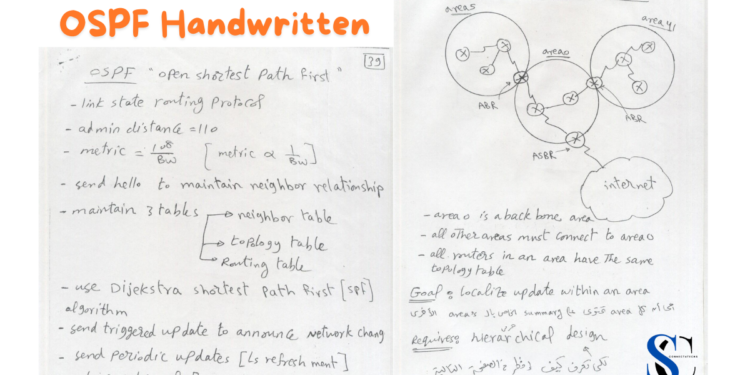 OSPF Handwritten
39
OSPF "open shortest Path first"
- link state routing Protocol
- admin distance = 110
- metric = 10^8/BW [metric ∝ 1/BW]
- send hello to maintain neighbor relationship
- maintain 3 tables
neighbor table
topology table
Routing table
- use Dijekstra shortest Path First [SPF]
algorithm
- send triggered update to announce network chang
- send Periodic updates [LS refreshment]
area5
area0
area4
ABR
ABR
ASBR
internet
- area0 is a back bone area
- all other areas must connect to area0
- all routers in an area have the same
topology table
Goal: Localize update within an area
area summary areas
Requires hierarchical design